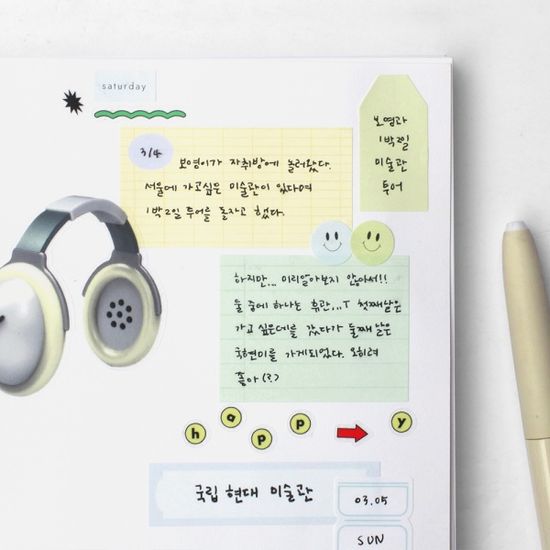 saturday
3/4
보영이가 자취방에 놀러왔다.
서울에 가고싶은 미술관이 있다며
1박 2일 투어를 돌자고 했다.
보영과
1박2일
미술관
투어
하지만... 미리알아보지 않아서!!
둘 중에 하나는 휴관...T 첫째날은
가고 싶은데를 갔다가 둘째 날은
국현미를 가게되었다. 오히려
좋아(?)
happy
국립 현대 미술관
03.05
SUN